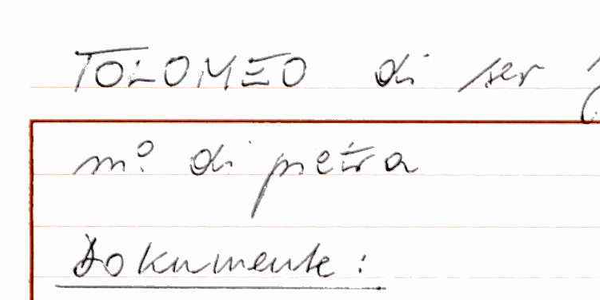 TOLOMEO di ser
m.o di pietra
Dokumente: